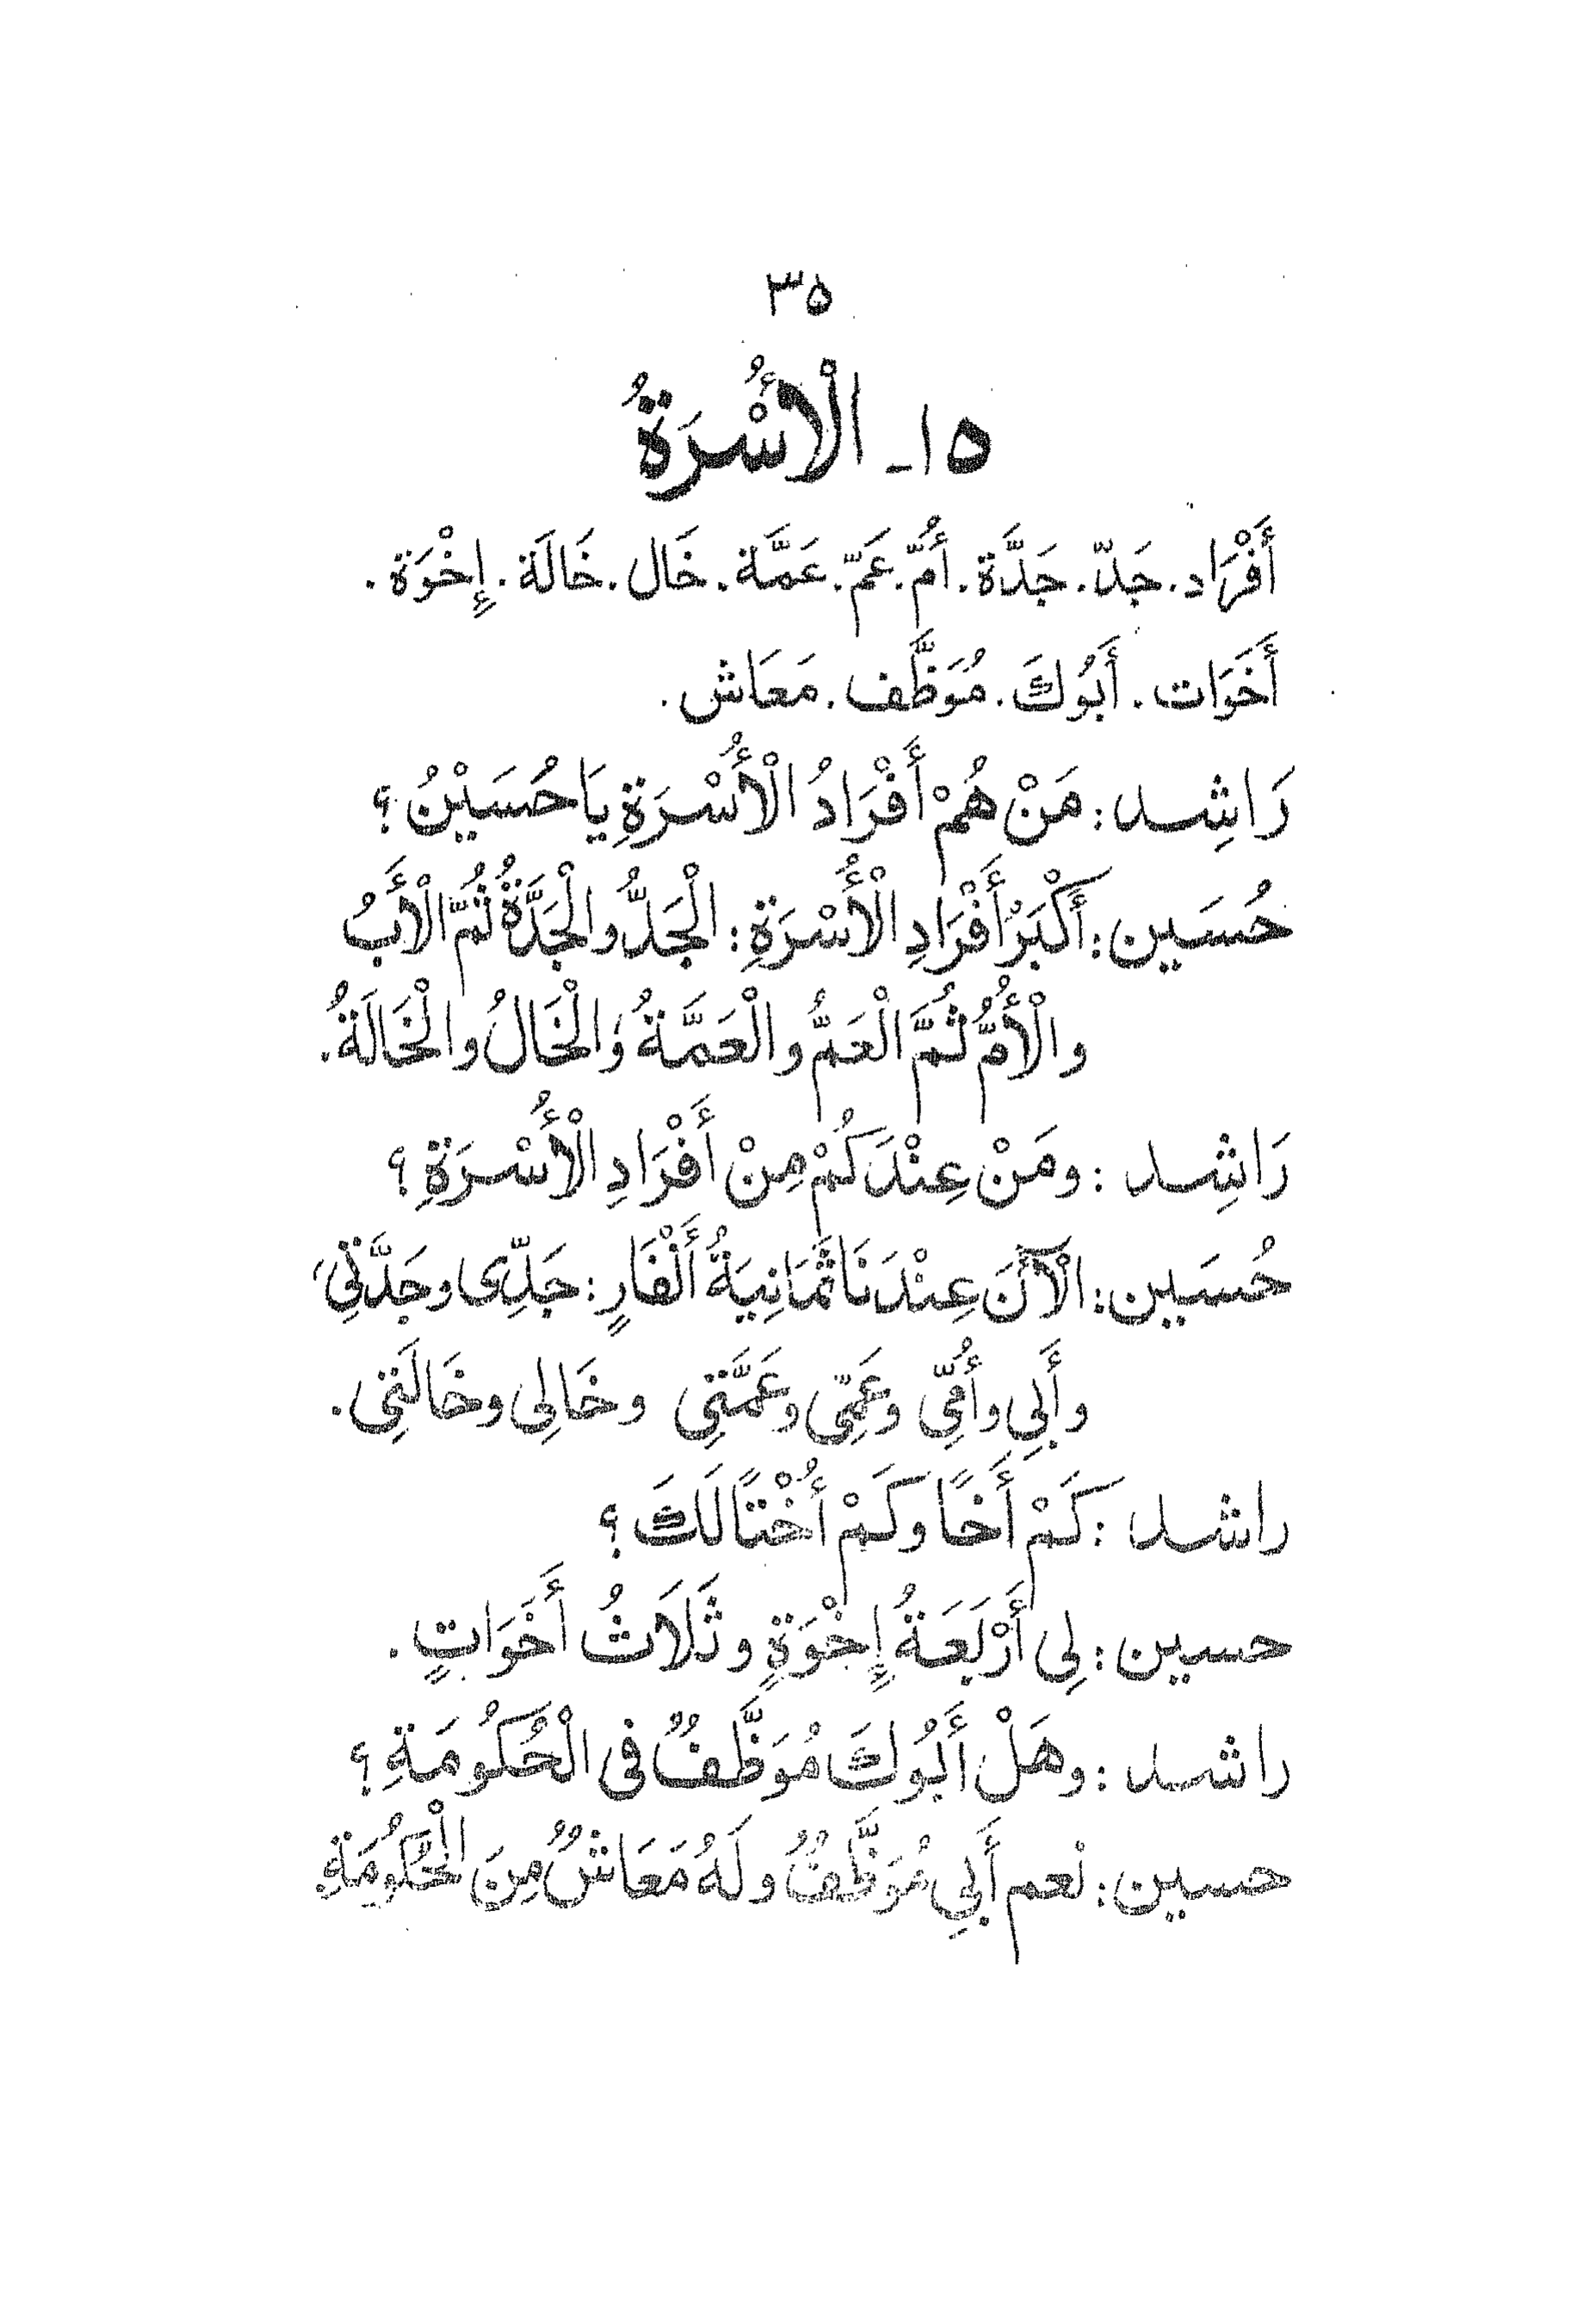 ٣٥
١٥- الْأُسْرَةُ
أَفْرَاد. جَدّ. جَدَّة. أُمّ. عَمّ. عَمَّة. خَال. خَالَة. إِخْوَة.
أَخَوَات. أَبُوكَ. مُوَظَّف. مَعَاش.
رَاشِد: مَنْ هُمْ أَفْرَادُ الْأُسْرَةِ يَا حُسَيْنُ؟
حُسَين: أَكْبَرُ أَفْرَادِ الْأُسْرَةِ: الْجَدُّ والْجَدَّةُ ثُمَّ الْأَبُ
والْأُمُّ ثُمَّ الْعَمُّ والْعَمَّةُ وَالْخَالُ والْخَالَةُ.
رَاشِد: ومَنْ عِنْدَكُمْ مِنْ أَفْرَادِ الْأُسْرَةِ؟
حُسَين: الْآنَ عِنْدَنَا ثَمَانِيَةُ أَنْفَارٍ: جَدِّى وجَدَّتِي،
وأَبِي وأُمِّي وعَمِّي وعَمَّتِي وخَالِي وخَالَتِي.
راشد: كَمْ أَخًا وكَمْ أُخْتًا لَكَ؟
حسين: لِي أَرْبَعَةُ إِخْوَةٍ وثَلَاثُ أَخَوَاتٍ.
راشد: وهَلْ أَبُوكَ مُوَظَّفٌ فى الْحُكُومَةِ؟
حسين: نعم أَبِي مُوَظَّفٌ ولَهُ مَعَاشٌ مِنَ الْحُكُومَةِ.